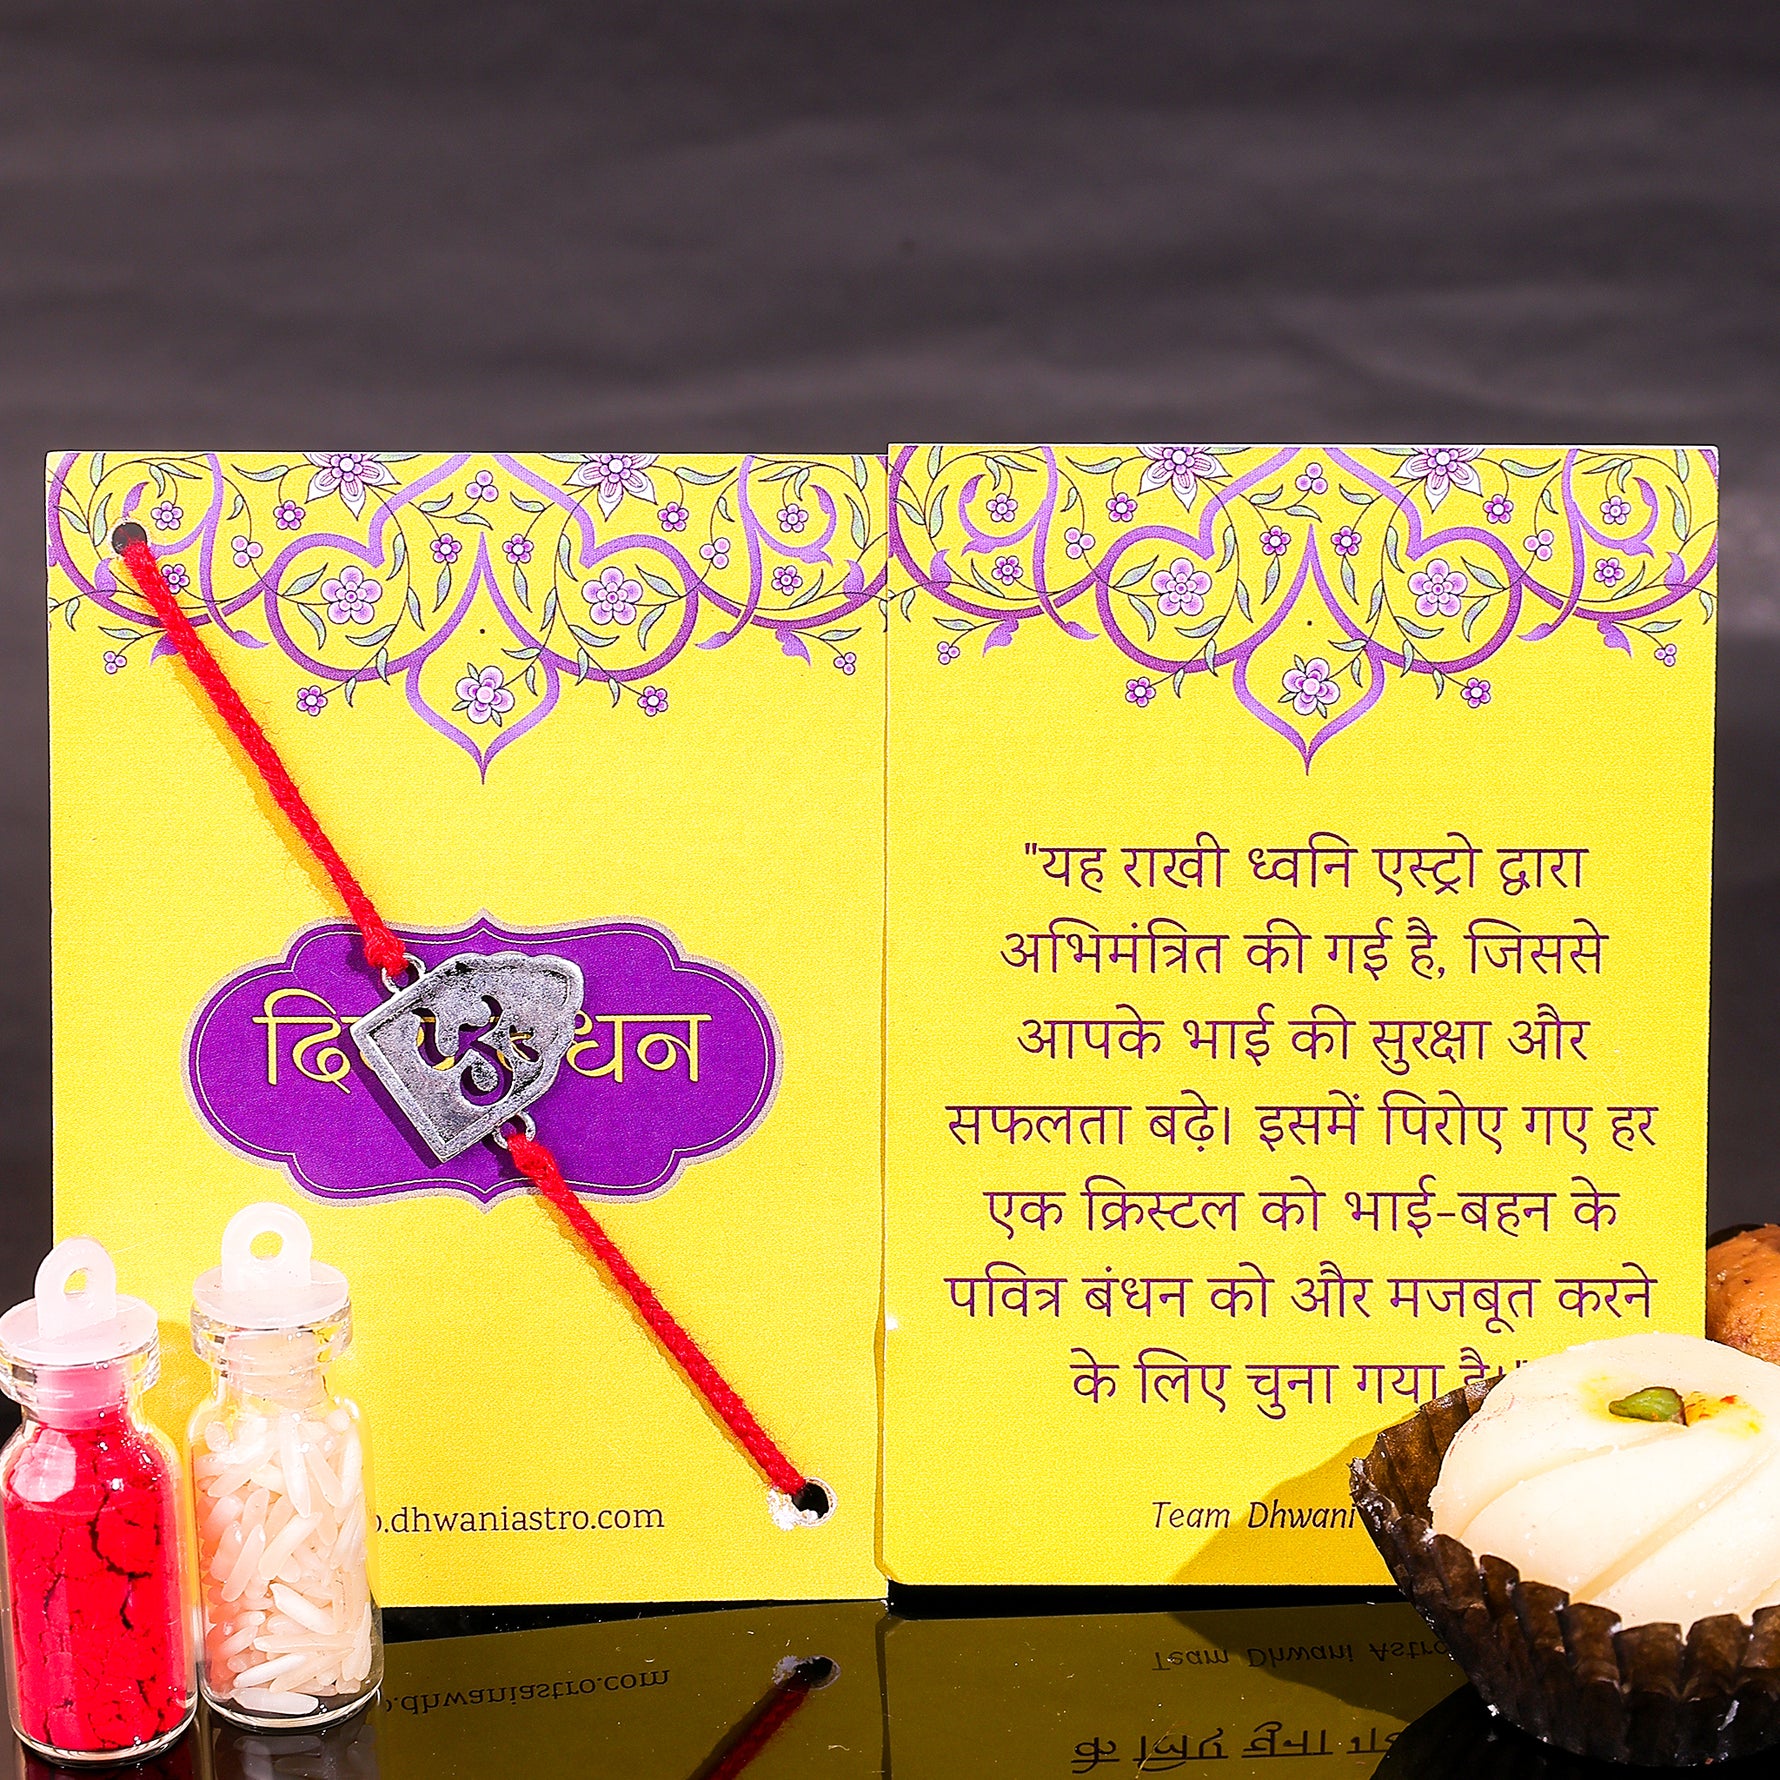 धन
.dhwaniastro.com
"यह राखी ध्वनि एस्ट्रो द्वारा
अभिमंत्रित की गई है, जिससे
आपके भाई की सुरक्षा और
सफलता बढ़े। इसमें पिरोए गए हर
एक क्रिस्टल को भाई-बहन के
पवित्र बंधन को और मजबूत करने
के लिए चुना गया है।"
Team Dhwani